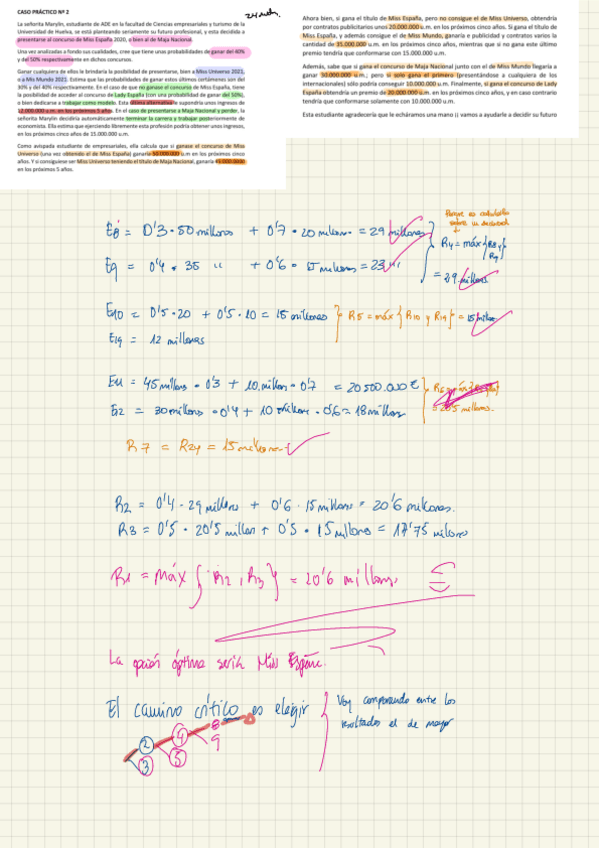 CASO PRÁCTICO Nº 2
La señorita Marylin, estudiante de ADE en la facultad de Ciencias empresariales y turismo de la
Universidad de Huelva, se está planteando seriamente su futuro profesional, y esta decidida a
presentarse al concurso de Miss España 2020, o bien al de Maja Nacional.
Una vez analizadas a fondo sus cualidades, cree que tiene unas probabilidades de ganar del 40%
y del 50% respectivamente en dichos concursos.
Ganar cualquiera de ellos le brindaría la posibilidad de presentarse, bien a Miss Universo 2021,
o a Mis Mundo 2021. Estima que las probabilidades de ganar estos últimos certámenes son del
30% y del 40% respectivamente. En el caso de que no ganase el concurso de Miss España, tiene
la posibilidad de acceder al concurso de Lady España (con una probabilidad de ganar del 50%),
o bien dedicarse a trabajar como modelo. Esta última alternativa le supondría unos ingresos de
12.000.000 u.m. en los próximos 5 años. En el caso de presentarse a Maja Nacional y perder, la
señorita Marylin decidiría automáticamente terminar la carrera y trabajar posteriormente de
economista. Ella estima que ejerciendo libremente esta profesión podría obtener unos ingresos,
en los próximos cinco años de 15.000.000 u.m.
Como avispada estudiante de empresariales, ella calcula que si ganase el concurso de Miss
Universo (una vez obtenido el de Miss España) ganaría 50.000.000 u.m en los próximos cinco
años. Y si consiguiese ser Miss Universo teniendo el título de Maja Nacional, ganaría 45.000.0000
en los próximos 5 años.
Ahora bien, si gana el título de Miss España, pero no consigue el de Miss Universo, obtendría
por contratos publicitarios unos 20.000.000 u.m. en los próximos cinco años. Si gana el título de
Miss España, y además consigue el de Miss Mundo, ganaría e publicidad y contratos varios la
cantidad de 35.000.000 u.m. en los próximos cinco años, mientras que si no gana este último
premio tendría que conformarse con 15.000.000 u.m.
Además, sabe que si gana el concurso de Maja Nacional junto con el de Miss Mundo llegaría a
ganar 30.000.000 u.m.; pero si solo gana el primero (presentándose a cualquiera de los
internacionales) sólo podría conseguir 10.000.000 u.m. Finalmente, si gana el concurso de Lady
España obtendría un premio de 20.000.000 u.m. en los próximos cinco años, y en caso contrario
tendría que conformarse solamente con 10.000.000 u.m.
Esta estudiante agradecería que le echáramos una mano ¡¡ vamos a ayudarle a decidir su futuro
E8 = 0'3 · 50 millones + 0'7 · 20 millones = 29 millones
R4 = máx {R8 y R9}
E9 = 0'4 · 35 " + 0'6 · 15 millones = 23 "
= 29 millones
E10 = 0'5 · 20 + 0'5 · 10 = 15 millones } R5 = máx { R10 y R19 } = 15 millones
E19 = 12 millones
E11 = 45 millones · 0'3 + 10 millones · 0'7 = 20 500.000 €
E12 = 30 millones · 0'4 + 10 millones · 0'6 = 18 millones
R7 = R24 = 15 millones
R2 = 0'4 · 29 millones + 0'6 · 15 millones = 20'6 millones.
R3 = 0'5 · 20'5 millones + 0'5 · 15 millones = 17'75 millones
R1 = máx { R2, R3 } = 20'6 millones
La opción óptima sería Miss España.
El camino crítico es elegir
Voy comparando entre los
resultados el de mayor
2 4 8
3 5 9